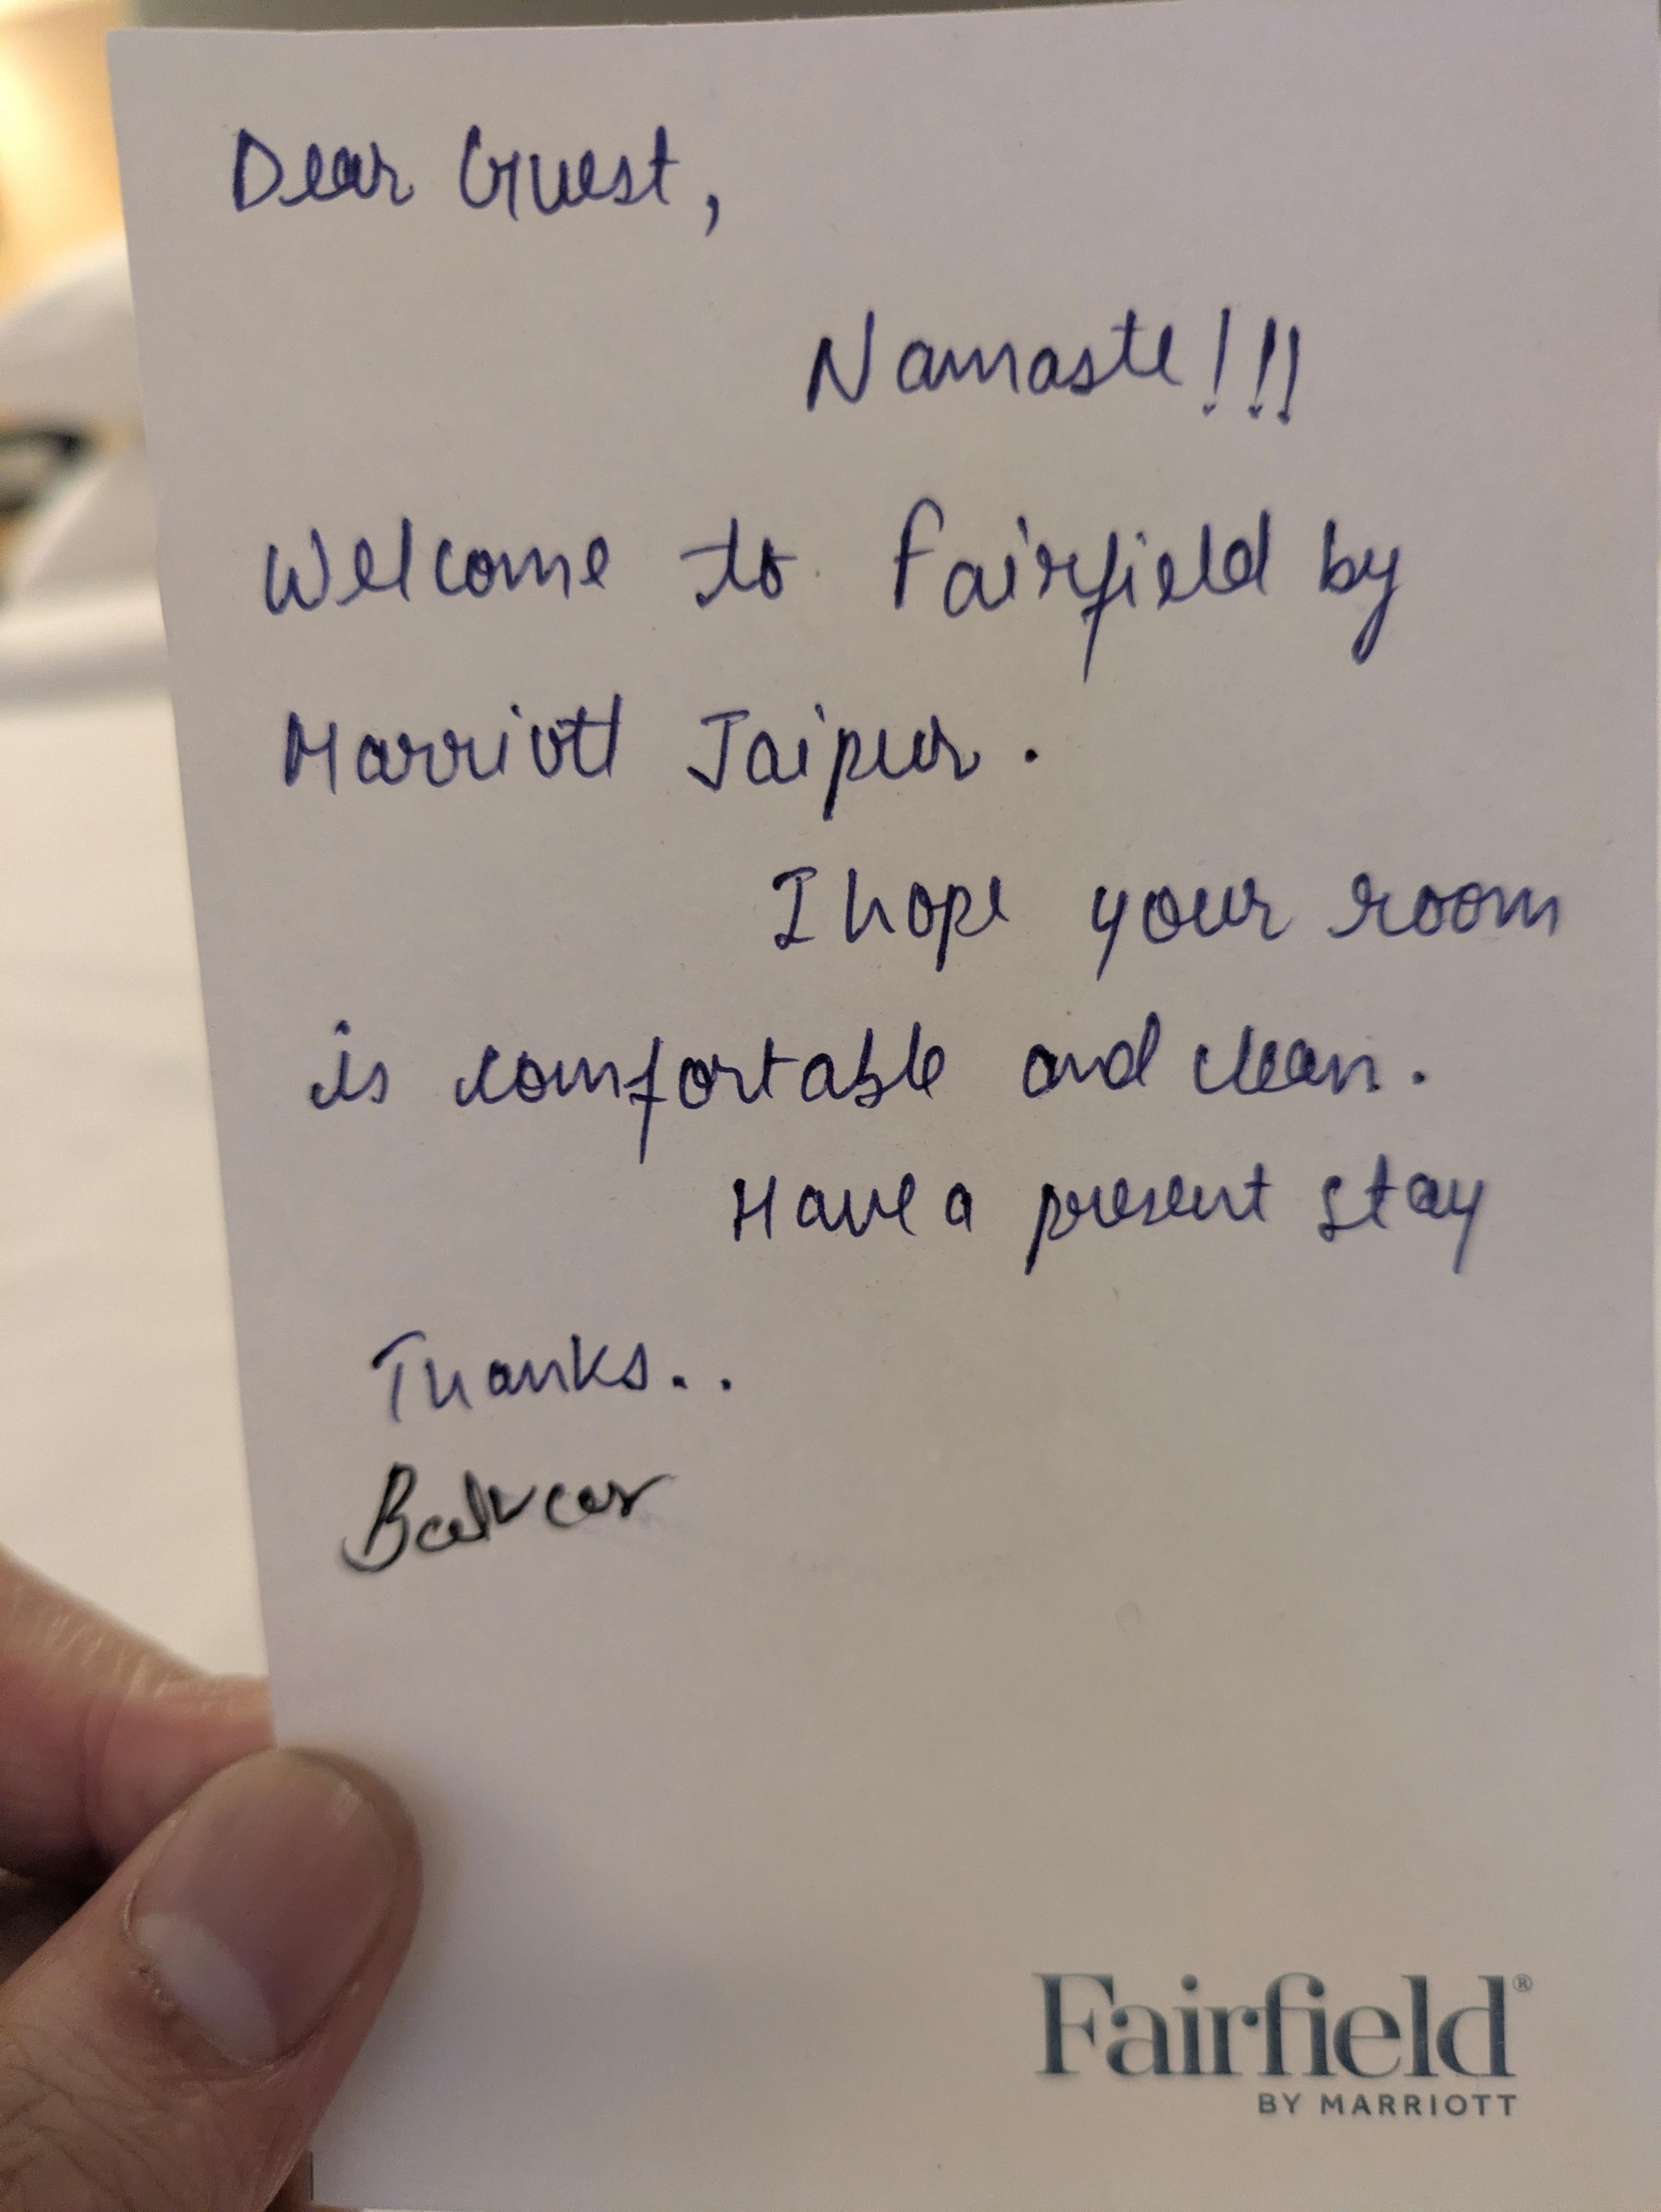 Dear Guest,
Namaste!!!
Welcome to Fairfield by
Marriott Jaipur.
I hope your room
is comfortable and clean.
Have a present stay
Thanks..
Fairfield®
BY MARRIOTT